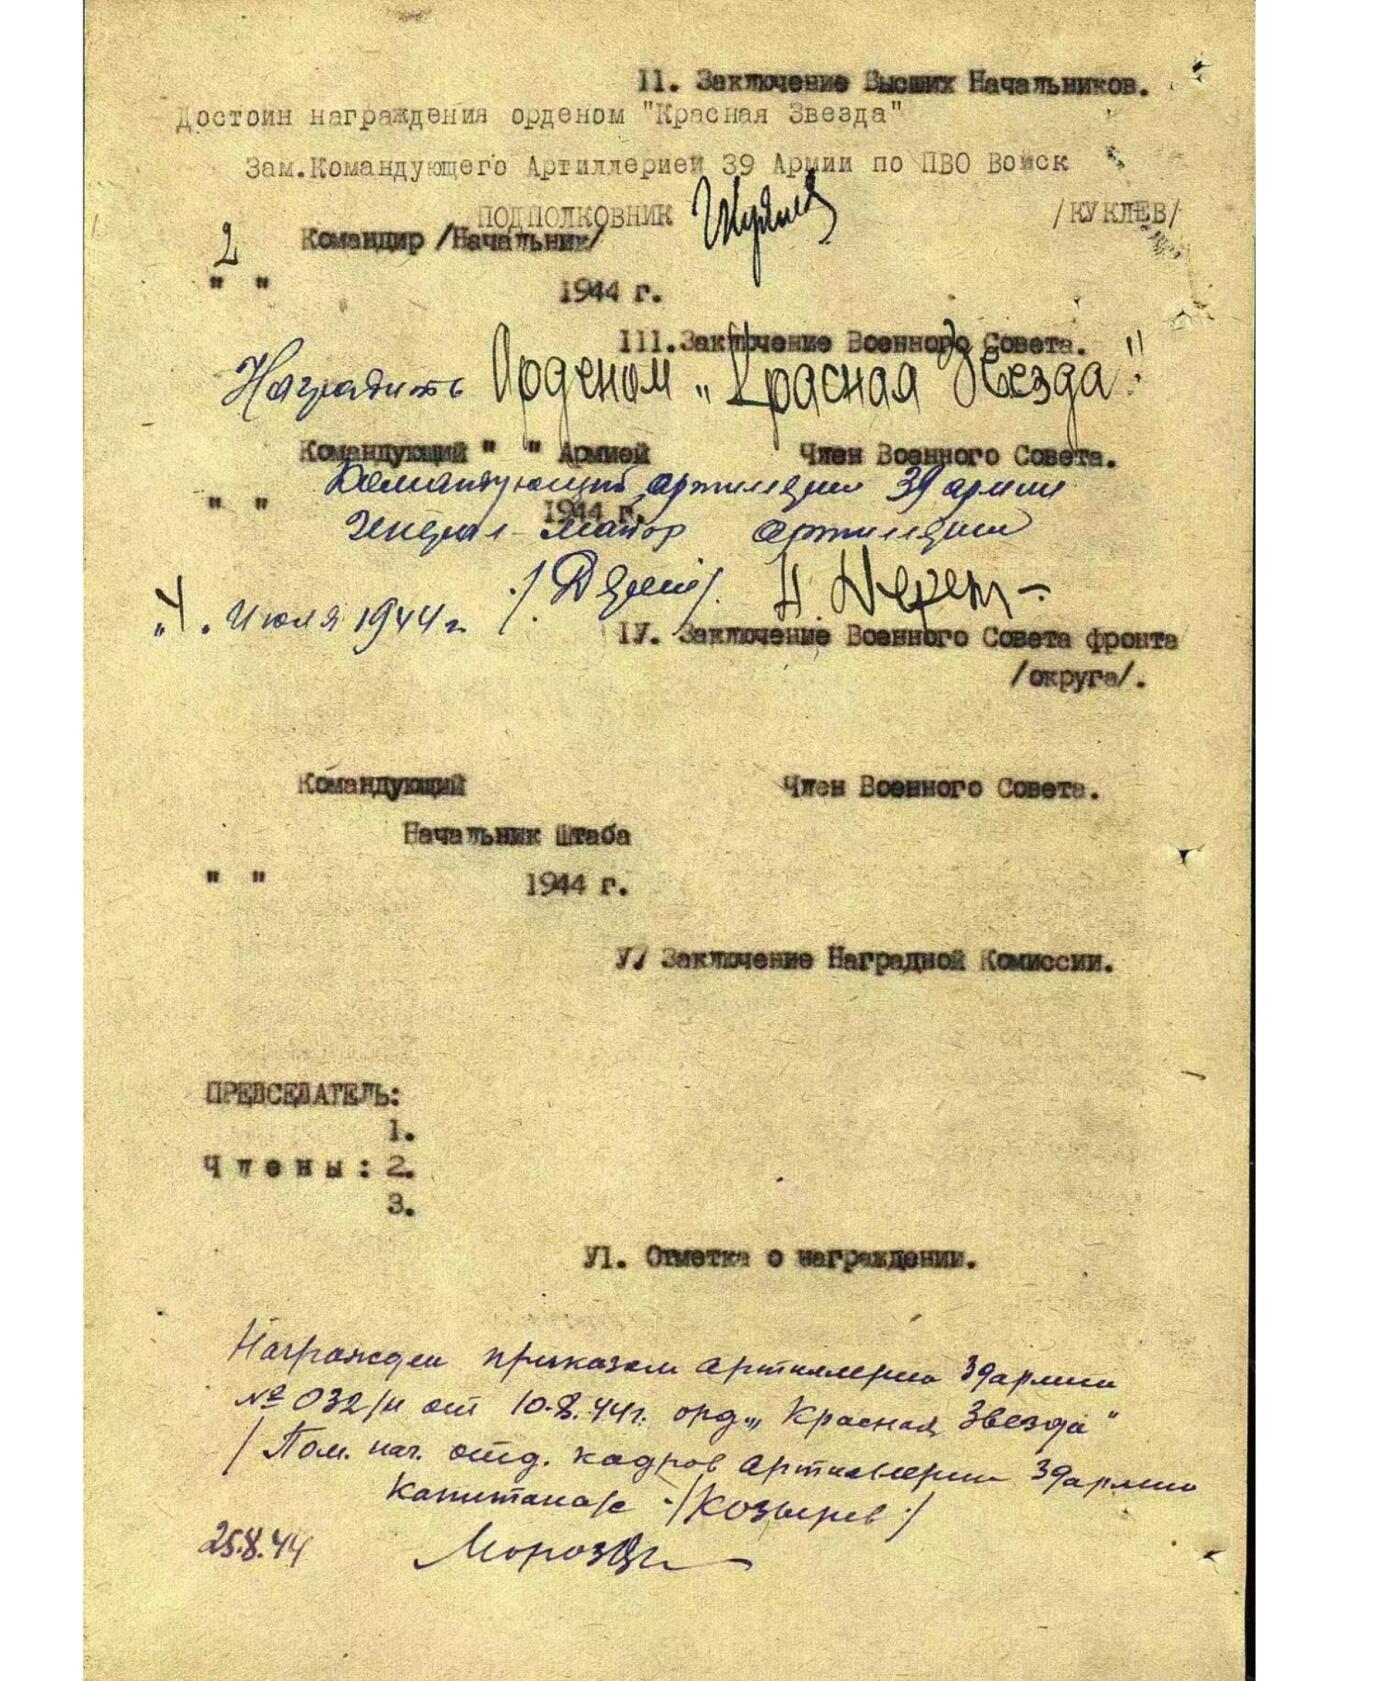 11. Заключение Высших Начальников.
Достоин награждения орденом "Красная Звезда"
Зам.Командующего Артиллерией 39 Армии по ПВО Войск
ПОДПОЛКОВНИК /КУКЛЕВ/
2 Командир /Начальник/
" " 1944 г.
111.Заключение Военного Совета.
Наградить Орденом „Красная Звезда"
Командующий " " Армией Член Военного Совета.
Командующий артилерии 39 армии
" " 1944 г.
Генерал-майор артилерии
„4". Июля 1944 г.
1У. Заключение Военного Совета фронта
/округа/.
Командующий Член Военного Совета.
Начальник Штаба
" " 1944 г.
У/ Заключение Наградной Комиссии.
ПРЕДСЕДАТЕЛЬ:
1.
Члены: 2.
3.
У1. Отметка о награждении.
Награжден приказом артиллерии 39 армии
№ 032/н от 10.8.44г. орд. „Красная Звезда"
/Пом. нач. отд. кадров артиллерии 39 армии
капитан а/с /Козырев/
25.8.44